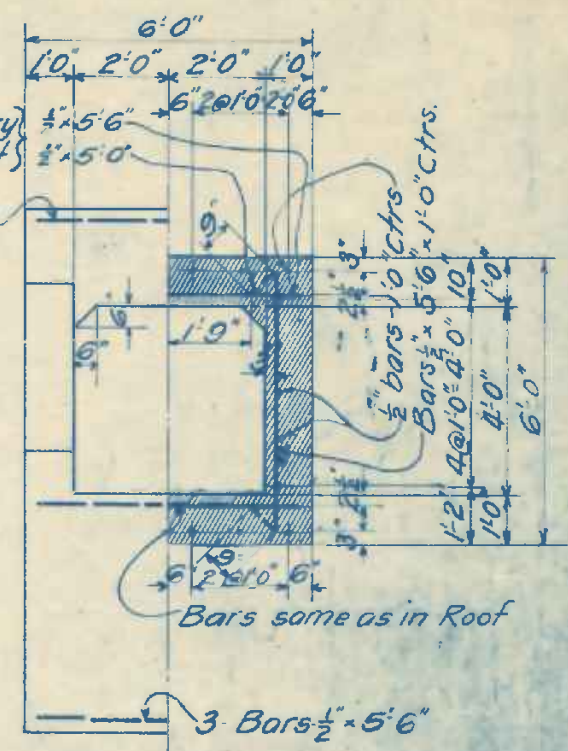 6'-0"
1'-0" 2'-0" 2'-0" 1'-0"
6" 2@1'-0" 6"
½" × 5'-6"
½" × 5'-0"
9"
6"
6"
1'-9"
3"
2½"
½" bars 1'-0" Ctrs
Bars ½" × 5'-6" × 1'-0" Ctrs.
10" 4@1'-0"=4'-0" 1'-2"
1'-0" 4'-0" 1'-0"
6'-0"
2½"
3"
9"
6" 2@1'-0" 6"
Bars same as in Roof
3-Bars-½" × 5'-6"